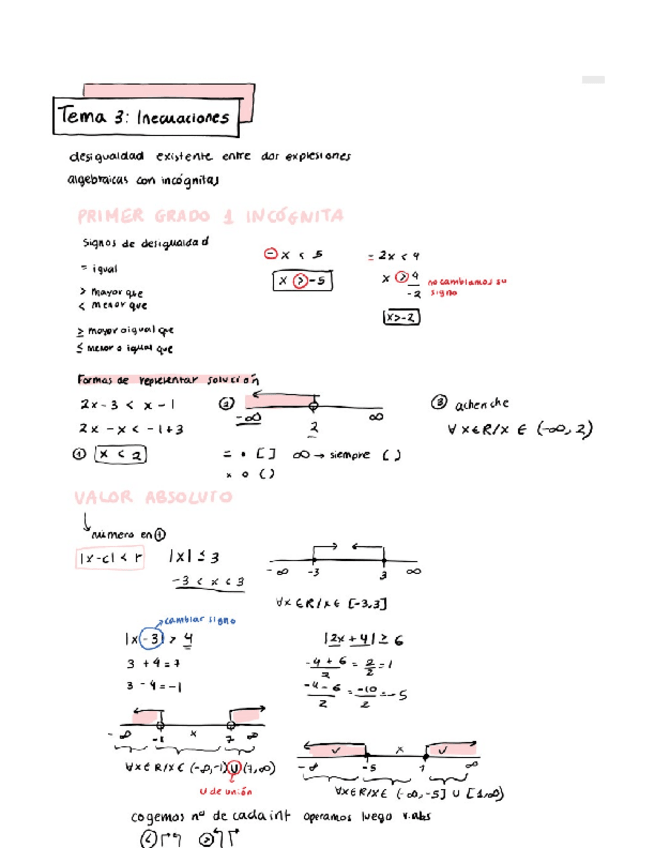 Tema 3: Inecuaciones
desigualdad existente entre dos expresiones
algebraicas con incógnitas
PRIMER GRADO 1 INCÓGNITA
Signos de desigualdad
= igual
> mayor que
< menor que
≥ mayor o igual que
≤ menor o igual que
- x < 5
x > -5
= 2x < 4
x > 4/-2
no cambiamos su signo
x>-2
Formas de representar solución
2x - 3 < x - 1
2x - x < -1+3
① x < 2
②
-∞ 2 ∞
= • [ ] ∞ → siempre ( )
× o ( )
③
∀ x∈R/x ∈ (-∞, 2)
VALOR ABSOLUTO
número en ①
|x-c| < r
|x| ≤ 3
-3 < x < 3
-∞ -3 3 ∞
∀x∈R/x∈ [-3,3]
cambiar signo
|x-3| > 4
3 + 4 = 7
3 - 4 = -1
-∞ -1 x 7 ∞
∀x∈R/x∈ (-∞,-1) U (7,∞)
U de unión
|2x + 4| ≥ 6
-4 + 6 / 2 = 2/2 = 1
-4 - 6 / 2 = -10/2 = -5
✓ x ✓
-∞ -5 1 ∞
∀x∈R/x∈ (-∞, -5] U [1,∞)
cogemos nº de cada int operamos luego v.abs